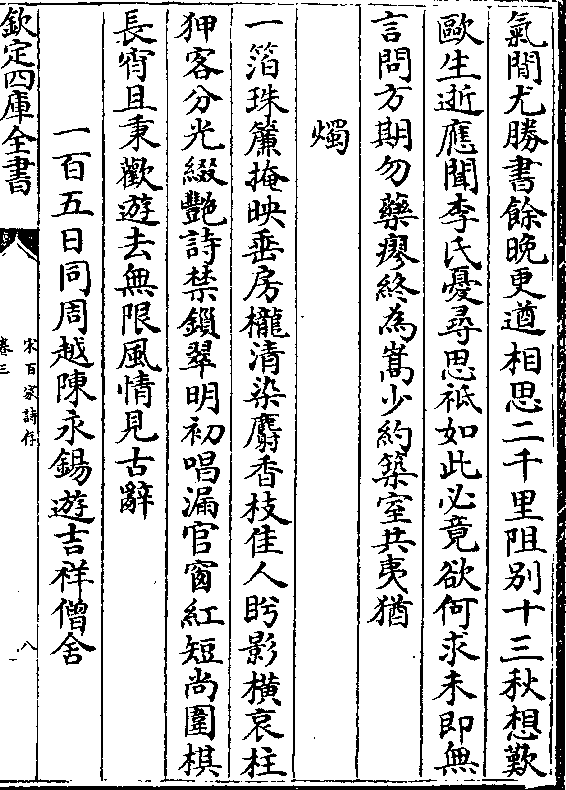 氣閒尤勝書餘晚更遒相思二千里阻别十三秋想歎
歐生逝應聞李氏憂尋思祗如此必竟欲何求未即無
言問方期勿藥瘳終為嵩少約築室共夷猶
燭
一箔珠簾掩映垂房櫳清染麝香枝佳人盻影橫哀柱
狎客分光綴艶詩禁鎖翠明初唱漏官窗紅短尚圍棋
長宵且秉歡遊去無限風情見古辭
一百五日同周越陳永錫遊吉祥僧舍
欽定四庫全書
宋百家詩存
卷三
八